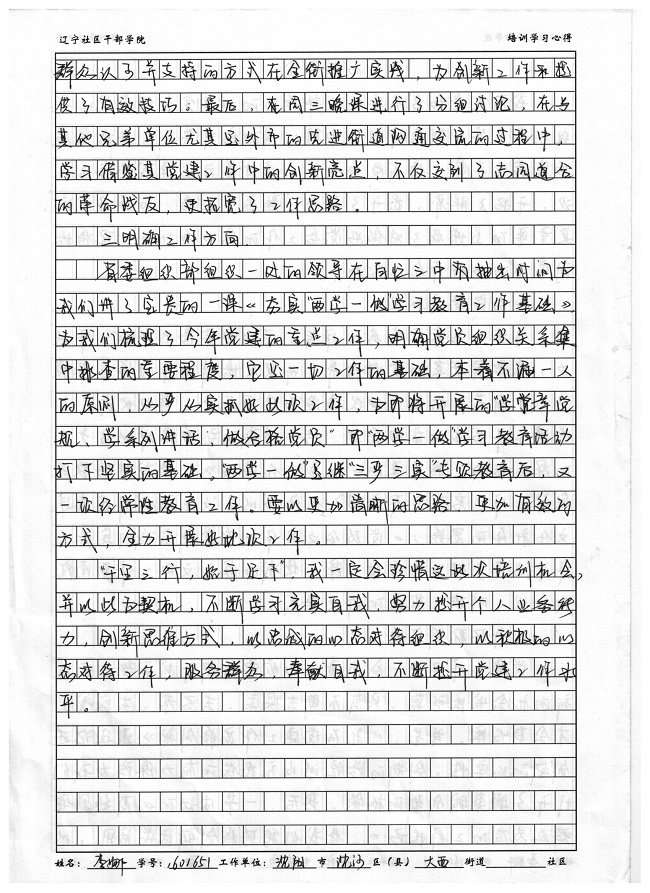 辽宁社区干部学院 培训学习心得
群众认可并支持的方式在全街推广实践，为创新工作开展提
供了有效技巧。最后，在周三晚课进行了分组讨论，在与
其他兄弟单位尤其是外市的先进街道沟通交流的过程中，
学习借鉴其党建工作中的创新亮点，不仅交到了志同道合
的革命战友，更拓宽了工作思路。
三明确工作方向
省委组织部组织一处的领导在百忙之中有抽出时间为
我们讲了宝贵的一课《夯实"两学一做"学习教育工作基础》
为我们梳理了今年党建的重点工作，明确党员组织关系集
中排查的重要程度，它是一切工作的基础，本着不漏一人
的原则，从步从实抓好此次工作，为即将开展的"学党章党
规、学系列讲话，做合格党员"即"两学一做"学习教育活动
打下坚实的基础。"两学一做"是继"三步三实"专项教育后，又
一次经常性教育工作。要以更加清晰的思路，更加有效的
方式，全力开展好此次工作。
"千里之行，始于足下"，我一定会珍惜这此次培训机会，
并以此为契机，不断学习充实自我，努力提升个人业务能
力，创新思维方式，以忠诚的心态对待组织，以积极的心
态对待工作，服务群众，奉献自我，不断提升党建工作水
平。
姓名：李娜 学号：1601651 工作单位：沈阳 市 沈河 区（县） 大西 街道 社区